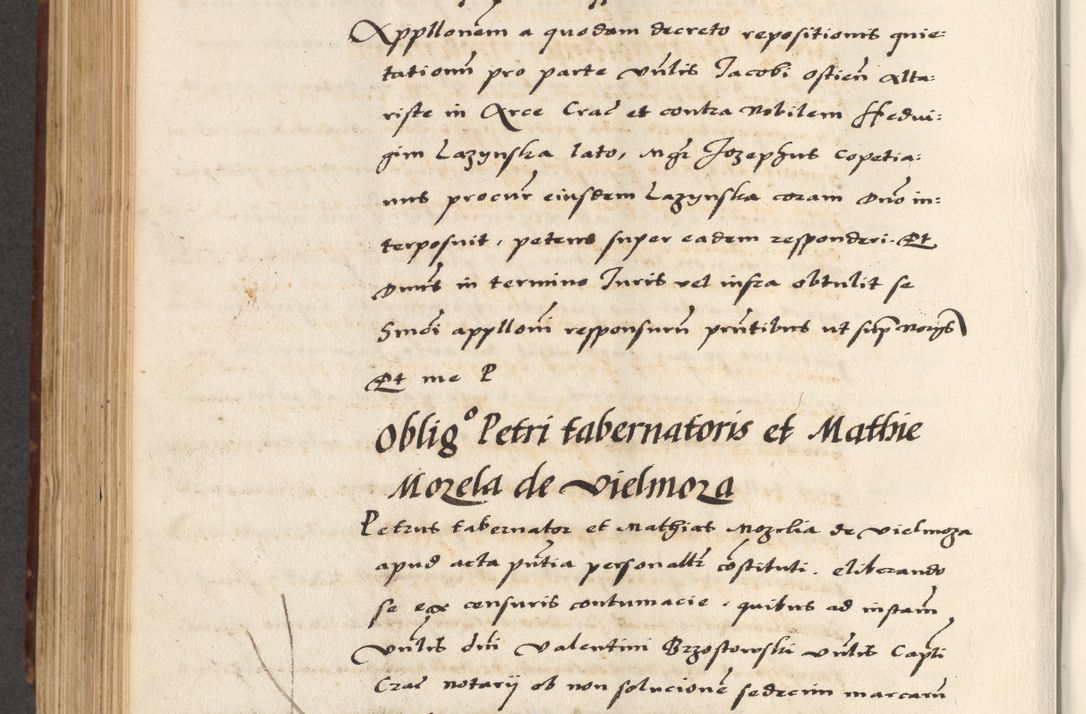 Appllonem a quodam decreto repositionis quie-
tationum pro parte vnlis Jacobi ostien Alta-
riste in Arce Crac et contra Nobilem Hedui-
gim Lazynska lato, Mgr Jozephus Copetia-
nus procur eiusdem Lazynska coram Dno in-
terposuit, petens super eadem responderi. Et
Dnus in termino Juris vel infra obtulit se
Smdi appllom responsurum pntibus ut sup Norijs
Et me P
Obligo Petri tabernatoris et Mathie
Mozela de Vielmoza
Petrus tabernator et Mathias Mozelia de Vielmoza
apud acta pntia personaltr costituti. eliberando
se ex censuris contumacie, quibus ad instam
vnlis dni Valentini Brzostowski vnlis Capli
Crac notarij ob non solucione sedecim marcaru